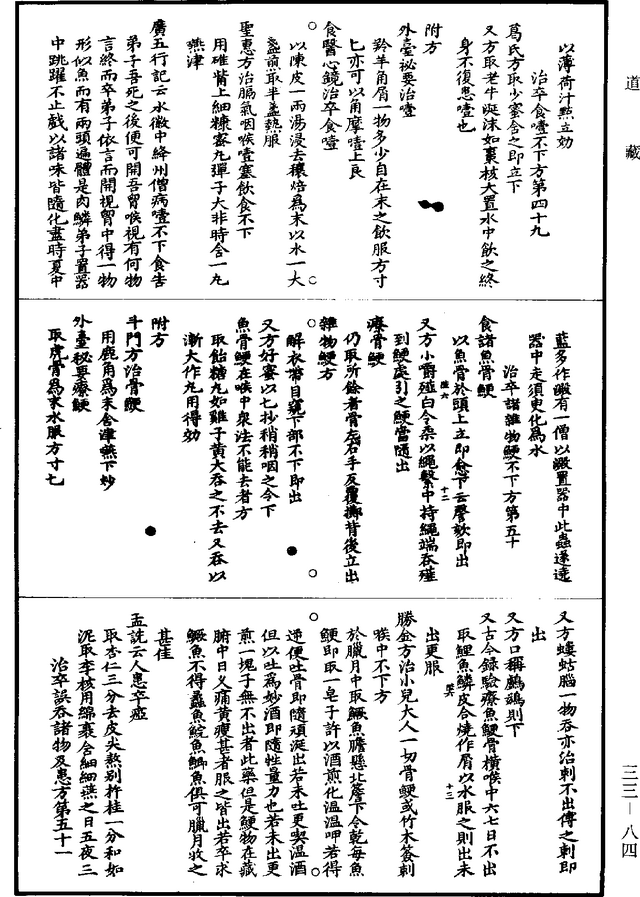 道藏
以薄荷汁點立効
治卒食噎不下方第四十九
葛氏方取少蜜含之即立下
又方取老牛涎沫如棗核大置水中飲之終
身不復患噎也
附方
外臺祕要治噎
羚羊角屑一物多少自在末之飲服方寸
匕亦可以角摩噎上良
食醫心鏡治卒食噎
以陳皮一兩湯浸去穰焙爲末以水一大
盞煎取半盞熱服
聖惠方治膈氣咽喉噎塞飲食不下
用碓觜上細糠蜜丸彈子大非時含一丸
嚥津
廣五行記云永徽中絳州僧病噎不下食告
弟子吾死之後便可開吾胷喉視有何物
言終而卒弟子依言而開視胷中得一物
形似魚而有兩頭遍體是肉鱗弟子置器
中跳躍不止戲以諸味皆隨化盡時夏中
藍多作澱有一僧以澱置器中此蟲遂遶
器中走須臾化爲水
治卒諸雜物鯁不下方第五十
食諸魚骨鯁
以魚骨於頭上立即愈下云謦欬即出
又方小嚼薤白令柔以繩繫中持繩端吞薤
到鯁處引之鯁當隨出
療骨鯁
仍取所餘者骨左右手反覆擲背後立出
雜物鯁方
解衣帶目窺下部不下即出
又方好蜜以匕抄稍稍咽之令下
魚骨鯁在喉中衆法不能去者方
取飴糖丸如雞子黃大吞之不去又吞以
漸大作丸用得効
附方
斗門方治骨鯁
用鹿角爲末含津嚥下妙
外臺祕要療鯁
取虎骨爲末水服方寸匕
又方螻蛄腦一物吞亦治刺不出傅之刺即
出
又方口稱鸕鷀則下
又古今錄驗療魚鯁骨橫喉中六七日不出
取鯉魚鱗皮合燒作屑以水服之則出未
出更服
勝金方治小兒大人一切骨鯁或竹木簽刺
喉中不下方
於臘月中取鱖魚膽懸北簷下令乾每魚
鯁即取一皂子許以酒煎化溫溫呷若得
逆便吐骨即隨頑涎出若未吐更喫溫酒
但以吐爲妙酒即隨性量力也若未出更
煎一塊子無不出者此藥但是鯁物在藏
腑中日乆痛黃瘦甚者服之皆出若卒求
鱖魚不得蠡魚鯇魚鯽魚俱可臘月收之
甚佳
孟詵云人患卒瘂
取杏仁三分去皮尖熬別杵桂一分和如
泥取李核用綿裹含細細嚥之日五夜三
治卒誤吞諸物及患方第五十一
三三－八四